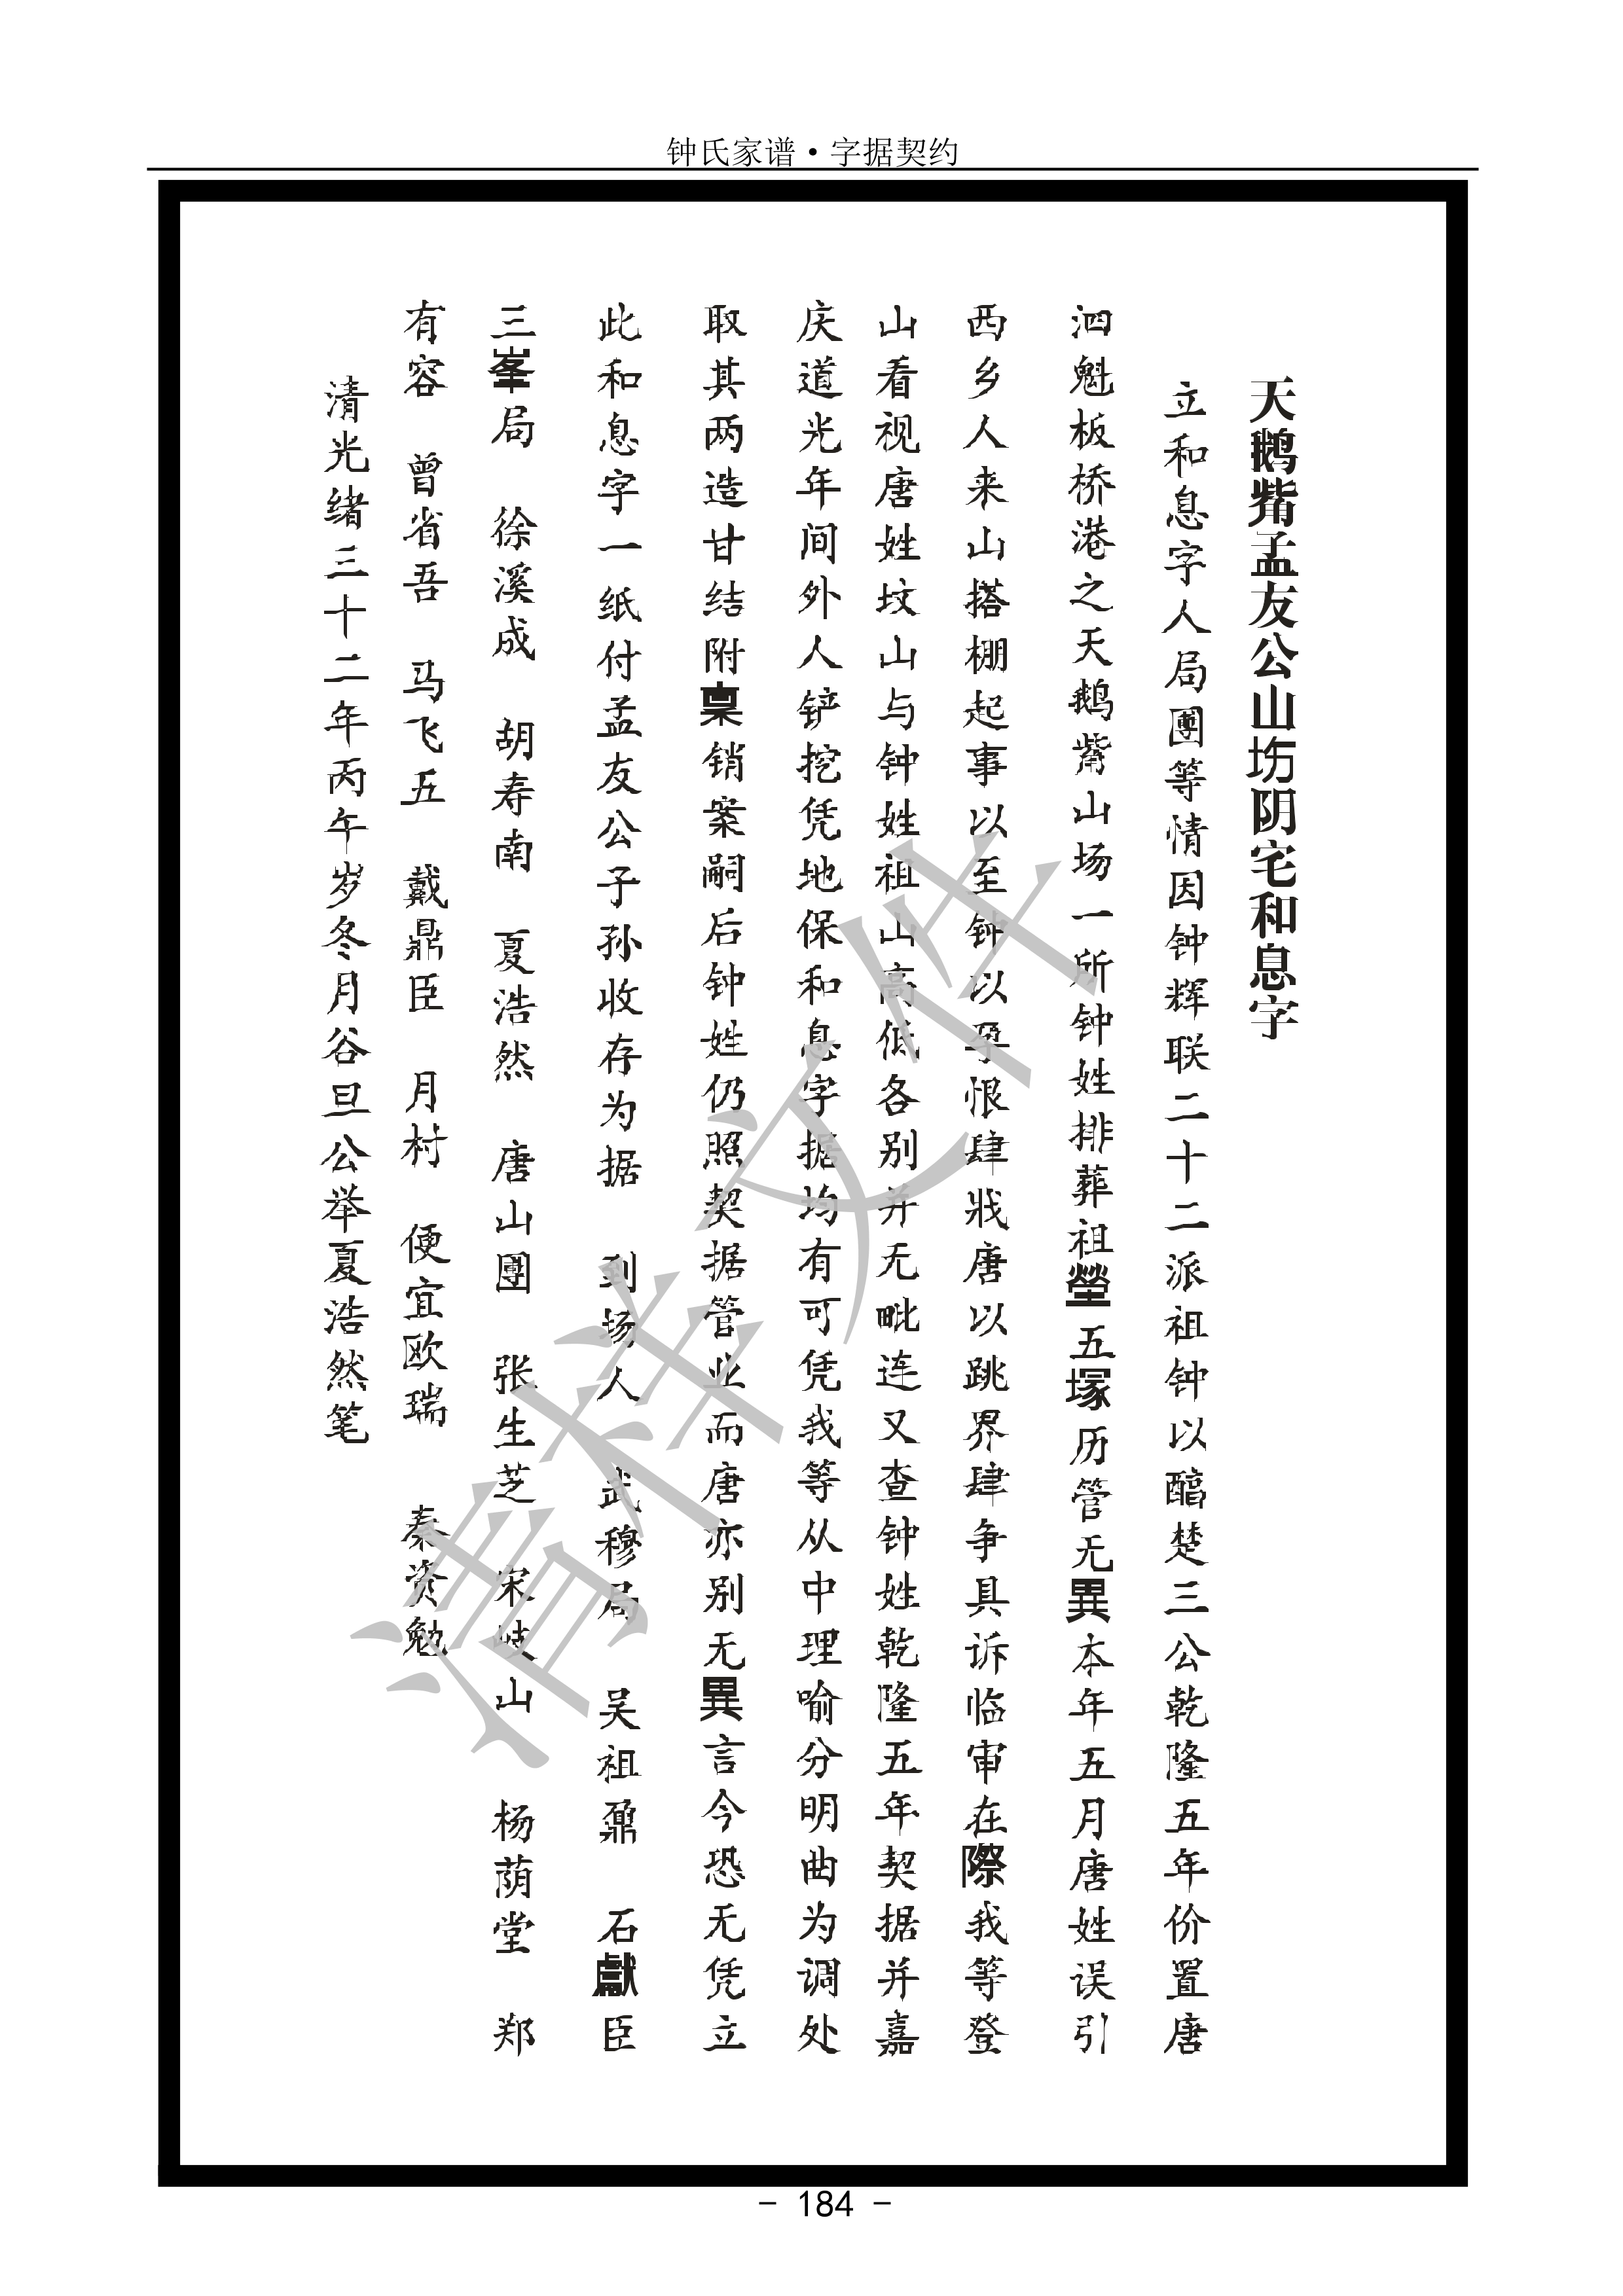 钟氏家谱·字据契约
天鹅觜孟友公山坊阴宅和息字
立和息字人局團等情因钟辉联二十二派祖钟以醕楚三公乾隆五年份置唐
泗魁板桥港之天鹅觜山场一所钟姓排葬祖塋五塚历管无異本年五月唐姓误引
西乡人来山搭棚起事以至钟以孕恨肆戕唐以跳界肆争具诉临审在際我等登
山看视唐姓坟山与钟姓祖山高低各别并无毗连又查钟姓乾隆五年契据并嘉
庆道光年间外人铲挖凭地保和息字据均有可凭我等从中理喻分明曲为调处
取其两造甘结附稟销案嗣后钟姓仍照契据管业而唐亦别无異言今恐无凭立
此和息字一纸付孟友公子孙收存为据 到场人 武穆局 吴祖鼐 石獻臣
三峯局 徐溪成 胡寿南 夏浩然 唐山團 张生芝 宋岐山 杨荫堂 郑
有容 曾省吾 马飞五 戴鼎臣 月村 便宜欧瑞 秦资勉
清光绪三十二年丙午岁冬月谷旦公举夏浩然笔
清样文件
- 184 -